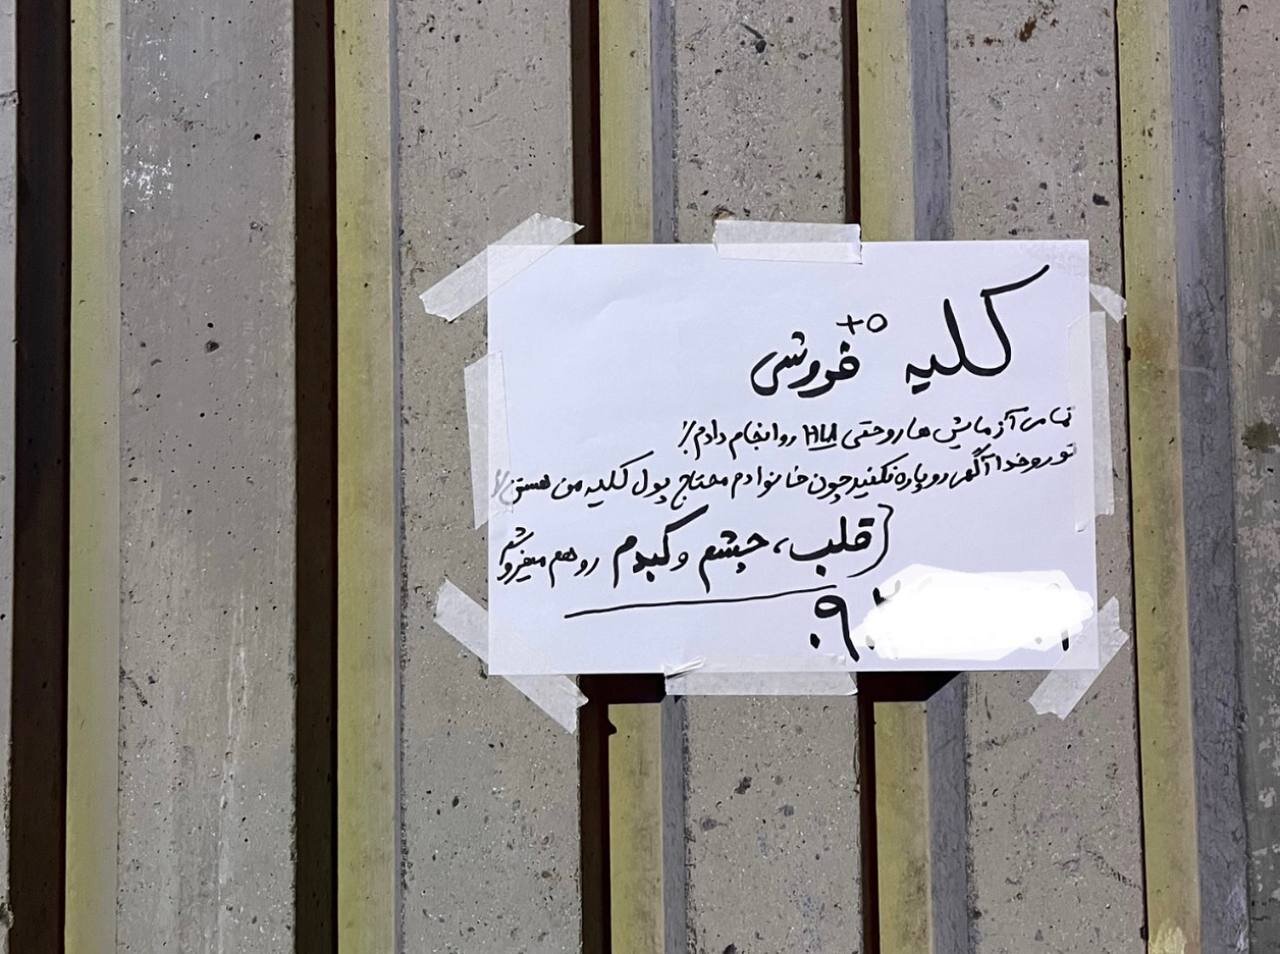 کلیه فروشی O+
تمامی آزمایش ها رو حتی HLA رو انجام دادم
تو رو خدا آگهی رو پاره نکنید چون خانوادم محتاج پول کلیه من هستن
قلب، چشم و کبدم رو هم میفروشم